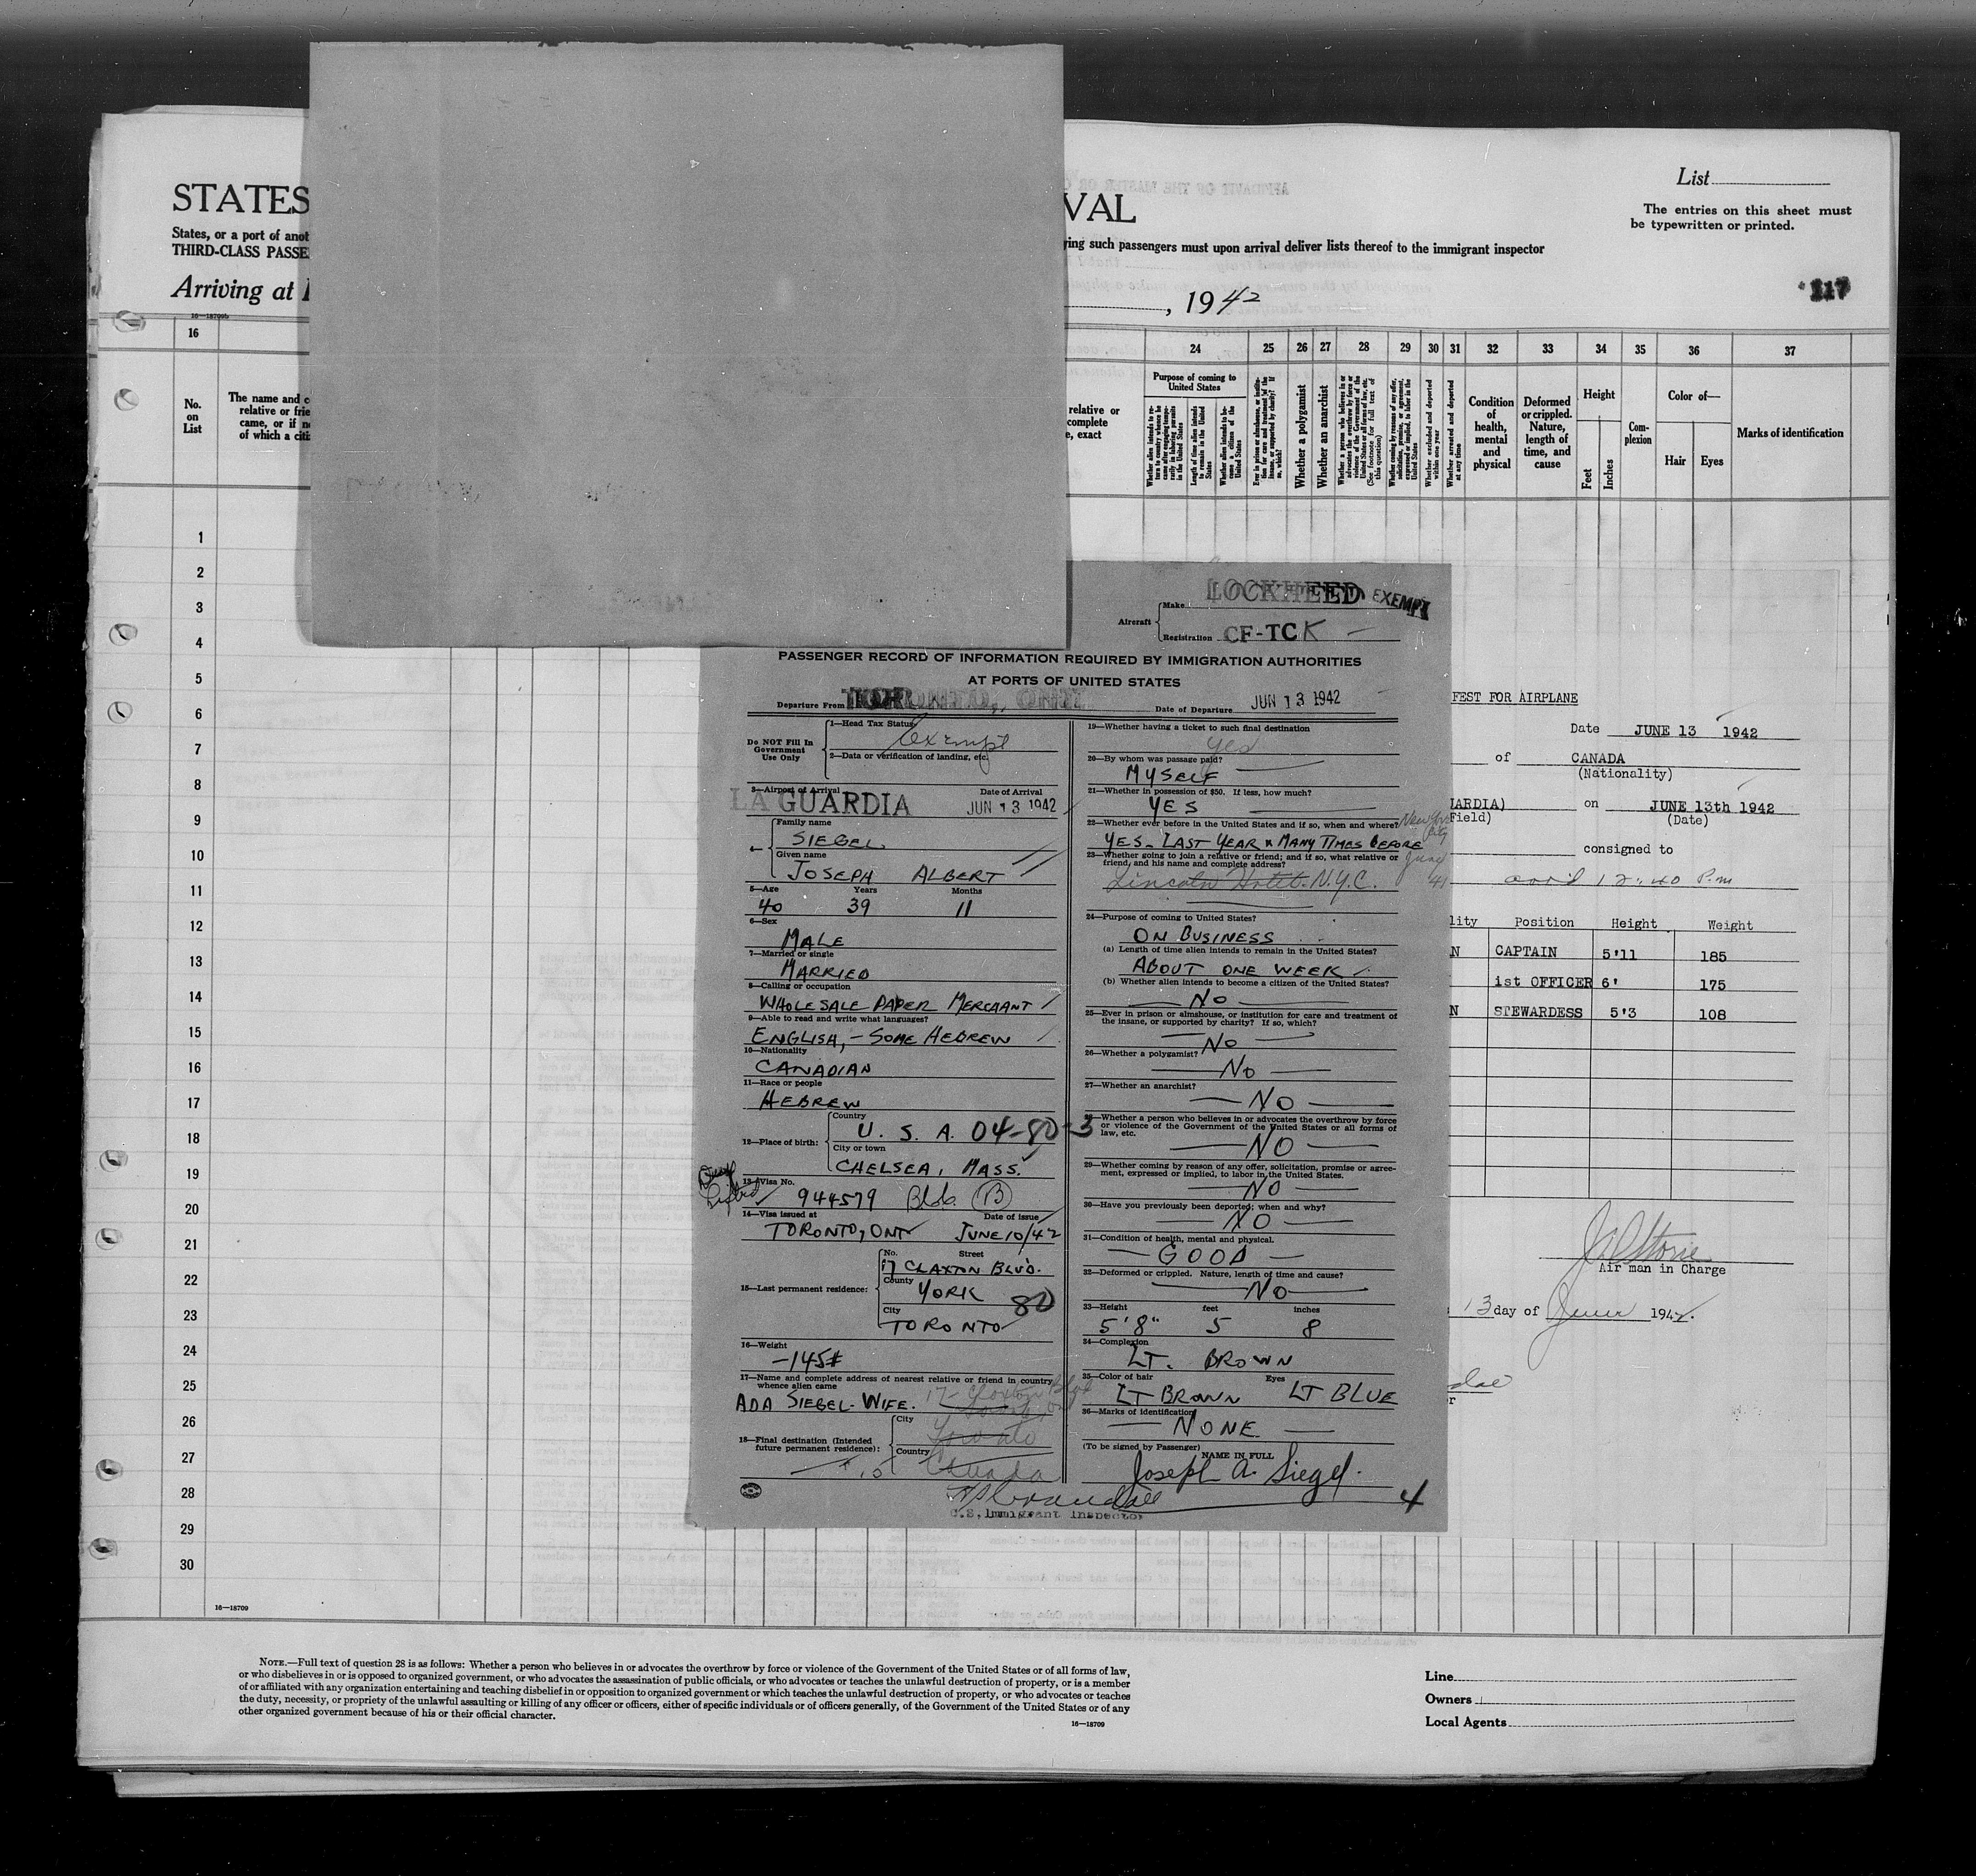 STATES
VAL
List
The entries on this sheet must
be typewritten or printed.
States, or a port of anot
ying such passengers must upon arrival deliver lists thereof to the immigrant inspector
THIRD-CLASS PASSE
Arriving at
, 1942
117
16—18709b
16
24 25 26 27 28 29 30 31 32 33 34 35 36 37
No.
on
List
The name and c
relative or frie
came, or if n
of which a citi
relative or
complete
e, exact
Purpose of coming to
United States
Whether alien intends to re-
turn to country whence he
came after engaging tempo-
rarily in laboring pursuits
in the United States
Length of time alien intends
to remain in the United
States
Whether alien intends to be-
come a citizen of the
United States
Ever in prison or almshouse, or institu-
tion for care and treatment of the
insane, or supported by charity? If
so, which?
Whether a polygamist
Whether an anarchist
Whether a person who believes in or
advocates the overthrow by force or
violence of the Government of the
United States or all forms of law, etc.
(See footnote for full text of
this question)
Whether coming by reasons of any offer,
solicitation, promise, or agreement,
expressed or implied, to labor in the
United States
Whether excluded and deported
within one year
Whether arrested and deported
at any time
Condition
of
health,
mental
and
physical
Deformed
or crippled.
Nature,
length of
time, and
cause
Height
Feet
Inches
Com-
plexion
Color of—
Hair Eyes
Marks of identification
1
2
3
4
5
6
7
8
9
10
11
12
13
14
15
16
17
18
19
20
21
22
23
24
25
26
27
28
29
30
16—18709
Aircraft
Make LOCKHEED EXEMPT
Registration CF-TCK
PASSENGER RECORD OF INFORMATION REQUIRED BY IMMIGRATION AUTHORITIES
AT PORTS OF UNITED STATES
Departure From TORONTO, ONT. Date of Departure JUN 13 1942
Do NOT Fill In
Government
Use Only
1—Head Tax Status
Exempt
2—Data or verification of landing, etc.
3—Airport of Arrival Date of Arrival
LA GUARDIA JUN 13 1942
4—
Family name
SIEGEL
Given name
JOSEPH ALBERT
5—Age Years Months
40 39 11
6—Sex
MALE
7—Married or single
MARRIED
8—Calling or occupation
WHOLESALE PAPER MERCHANT
9—Able to read and write what languages?
ENGLISH, – SOME HEBREW
10—Nationality
CANADIAN
11—Race or people
HEBREW
12—Place of birth:
Country
U. S. A. 04-80-3
City or town
CHELSEA, MASS.
13—Visa No.
944579 B
14—Visa issued at Date of issue
TORONTO, ONT JUNE 10/42
15—Last permanent residence:
No. Street
17 CLAXTON BLVD.
County
YORK 80
City
TORONTO
16—Weight
–145#
17—Name and complete address of nearest relative or friend in country
whence alien came
ADA SIEGEL - WIFE. 17- Claxton Blvd
Toronto Ont
18—Final destination (Intended
future permanent residence):
City
Toronto
Country
Canada
19—Whether having a ticket to such final destination
yes
20—By whom was passage paid?
MYSELF
21—Whether in possession of $50. If less, how much?
YES
22—Whether ever before in the United States and if so, when and where? New York City
YES – LAST YEAR & MANY TIMES BEFORE
June 41
23—Whether going to join a relative or friend; and if so, what relative or
friend, and his name and complete address?
Lincoln Hotel. N.Y.C.
24—Purpose of coming to United States?
ON BUSINESS
(a) Length of time alien intends to remain in the United States?
ABOUT ONE WEEK
(b) Whether alien intends to become a citizen of the United States?
NO
25—Ever in prison or almshouse, or institution for care and treatment of
the insane, or supported by charity? If so, which?
NO
26—Whether a polygamist?
NO
27—Whether an anarchist?
NO
28—Whether a person who believes in or advocates the overthrow by force
or violence of the Government of the United States or all forms of
law, etc.
NO
29—Whether coming by reason of any offer, solicitation, promise or agree-
ment, expressed or implied, to labor in the United States.
NO
30—Have you previously been deported; when and why?
NO
31—Condition of health, mental and physical.
GOOD
32—Deformed or crippled. Nature, length of time and cause?
NO
33—Height feet inches
5'8" 5 8
34—Complexion
LT. BROWN
35—Color of hair Eyes
LT BROWN LT BLUE
36—Marks of identification
NONE
(To be signed by Passenger)
NAME IN FULL
Joseph A. Siegel.
4
U.S. Immigrant Inspector
FEST FOR AIRPLANE
Date JUNE 13 1942
of CANADA
(Nationality)
UARDIA) on JUNE 13th 1942
Field) (Date)
consigned to
12:40 P.m
lity Position Height Weight
N CAPTAIN 5'11 185
ist OFFICER 6' 175
N STEWARDESS 5'3 108
Air man in Charge
13 day of June 1942.
NOTE.—Full text of question 28 is as follows: Whether a person who believes in or advocates the overthrow by force or violence of the Government of the United States or of all forms of law,
or who disbelieves in or is opposed to organized government, or who advocates the assassination of public officials, or who advocates or teaches the unlawful destruction of property, or is a member
of or affiliated with any organization entertaining and teaching disbelief in or opposition to organized government or which teaches the unlawful destruction of property, or who advocates or teaches
the duty, necessity, or propriety of the unlawful assaulting or killing of any officer or officers, either of specific individuals or of officers generally, of the Government of the United States or of any
other organized government because of his or their official character.
16—18709
Line
Owners
Local Agents